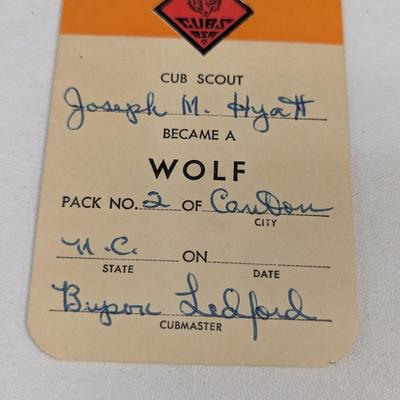 CUBS
BSA
CUB SCOUT
Joseph M. Hyatt
BECAME A
WOLF
PACK NO. 2 OF Canton
CITY
N.C. ON
STATE DATE
Byson Ledford
CUBMASTER